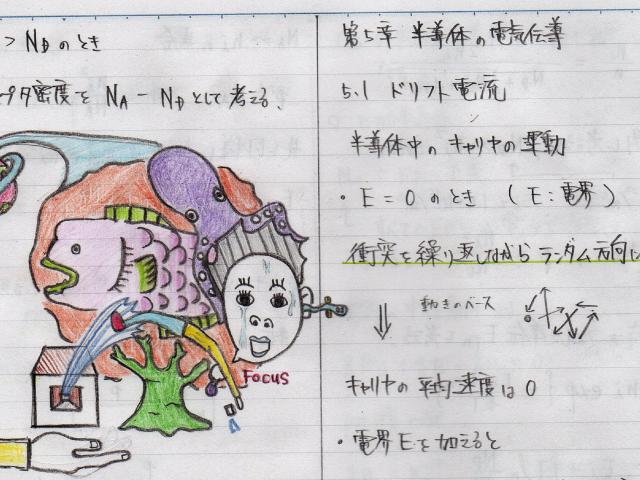 > N_D のとき
プタ密度を N_A - N_D として考える.
FOCUS
第5章 半導体の電気伝導
5.1 ドリフト電流
半導体中のキャリヤの運動
・E = 0 のとき ( E : 電界 )
衝突を繰り返しながらランダム方向に
⇓ 動きのベース
キャリヤの平均速度は 0
・電界 E を加えると